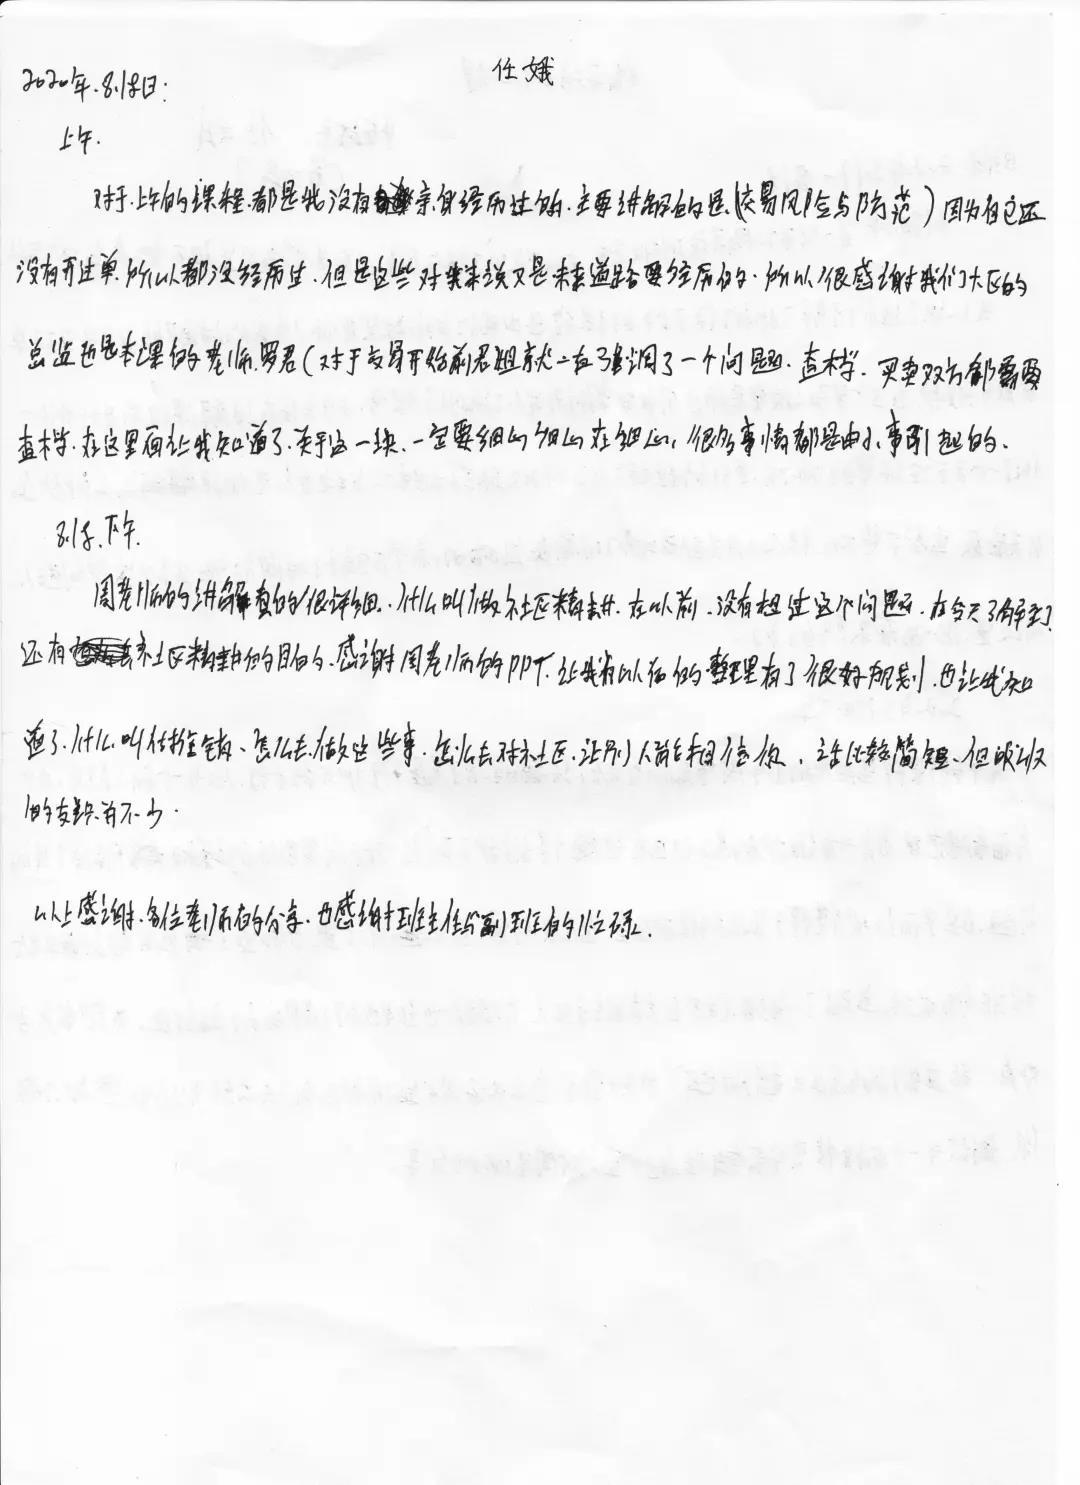 任娥
2020年.8.18日:
上午.
对于上午的课程.都是我没有亲身经历过的.主要讲解的是(交易风险与防范)因为自己还
没有开过单.所以都没经历过.但是这些对我来说又是未来道路要经历的.所以很感谢我们大区的
总监也是本课的老师.罗君(对于交易开始前君姐就一在强调了一个问题.查档.买卖双方都需要
查档.在这里面让我知道了.关于这一块.一定要细心细心在细心,很多事情都是由小事引起的.
8.18.下午.
周老师的讲解真的很详细.什么叫做社区精耕.在以前.没有想过这个问题.在今天了解到了
还有社区精耕的目的.感谢周老师的PPT.让我有以后的整理有了很好规划.也让我知
道了.什么叫、怎么去做这些事.怎么去对社区.让别人前台相信你,话比较简短、但吸收
的知识有不少.
以上感谢.各位老师的分享.也感谢班主任与副班的付录.